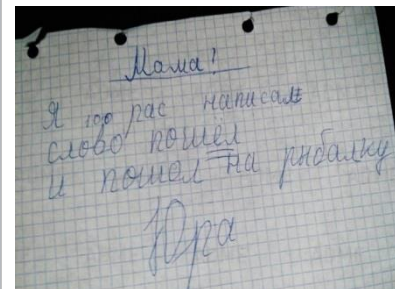 Мама!
Я 100 рас написал
слово пошёл
и пошел на рыбалку
Юра